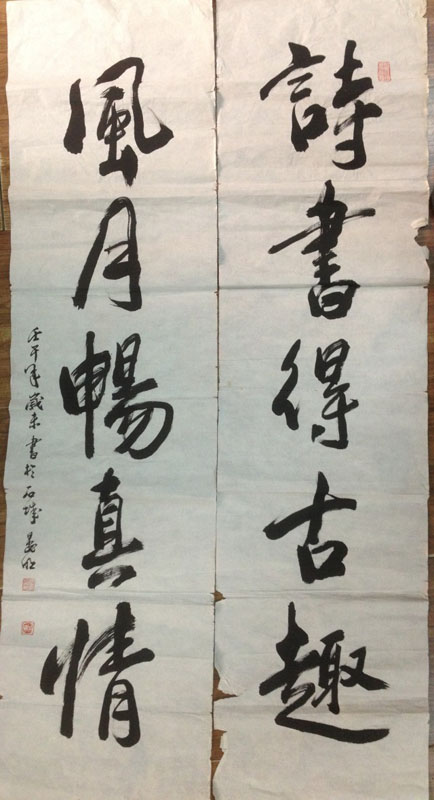 詩書得古趣
風月暢真情
壬午年歲末書於石城